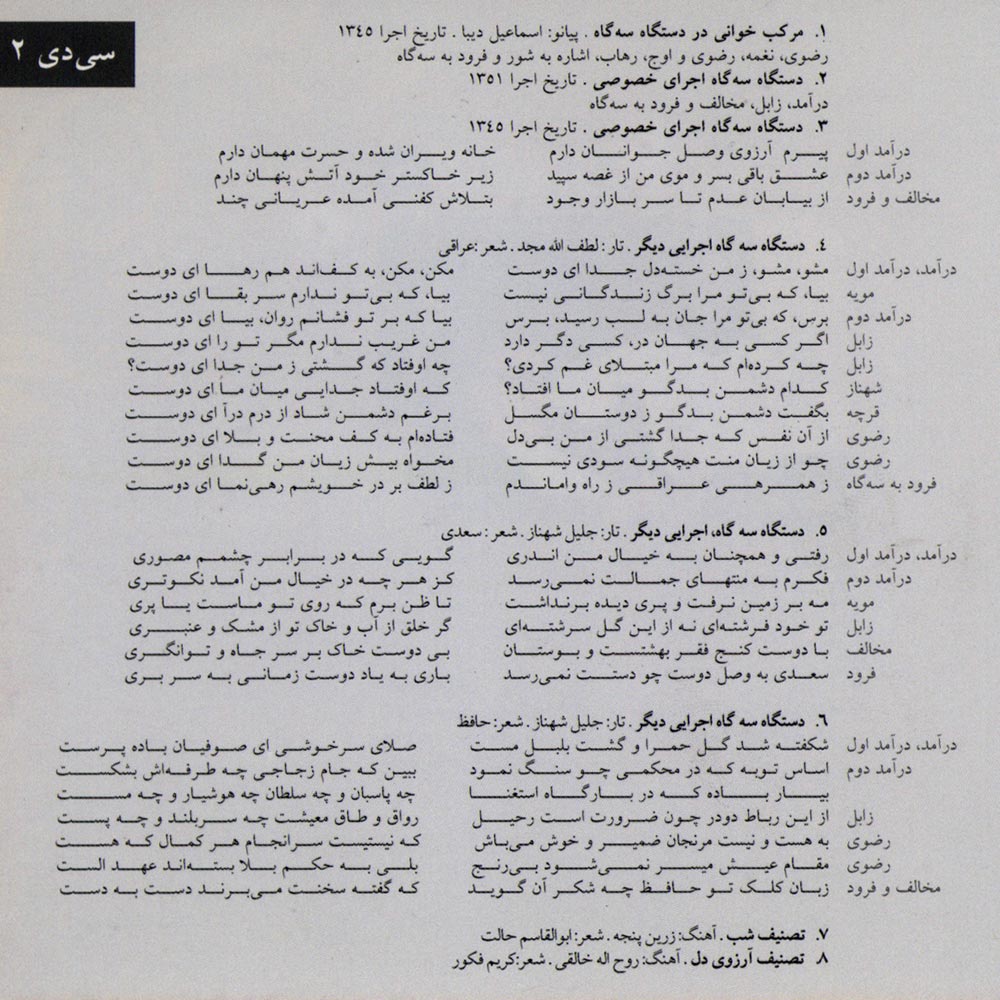 سی‌دی ۲
۱. مرکب خوانی در دستگاه سه‌گاه . پیانو: اسماعیل دیبا . تاریخ اجرا ۱۳۴۵
رضوی، نغمه، رضوی و اوج، رهاب، اشاره به شور و فرود به سه‌گاه
۲. دستگاه سه‌گاه اجرای خصوصی . تاریخ اجرا ۱۳۵۱
درآمد، زابل، مخالف و فرود به سه‌گاه
۳. دستگاه سه‌گاه اجرای خصوصی . تاریخ اجرا ۱۳۴۵
درآمد اول پیرم آرزوی وصل جوانان دارم خانه ویران شده و حسرت مهمان دارم
درآمد دوم عشق باقی بسر و موی من از غصه سپید زیر خاکستر خود آتش پنهان دارم
مخالف و فرود از بیابان عدم تا سر بازار وجود بتلاش کفنی آمده عریانی چند
۴. دستگاه سه گاه اجرایی دیگر . تار: لطف الله مجد . شعر :عراقی
درآمد، درآمد اول مشو، مشو، ز من خسته‌دل جدا ای دوست مکن، مکن، به کف‌اند هم رها ای دوست
مویه بیا، که بی‌تو مرا برگ زندگانی نیست بیا، که بی‌تو ندارم سر بقا ای دوست
درآمد دوم برس، که بی‌تو مرا جان به لب رسید، برس بیا که بر تو فشانم روان، بیا ای دوست
زابل اگر کسی به جهان در، کسی دگر دارد من غریب ندارم مگر تو را ای دوست
زابل چه کرده‌ام که مرا مبتلای غم کردی؟ چه اوفتاد که گشتی ز من جدا ای دوست؟
شهناز کدام دشمن بدگو میان ما افتاد؟ که اوفتاد جدایی میان ما ای دوست
قرچه بگفت دشمن بدگو ز دوستان مگسل برغم دشمن شاد از درم درآ ای دوست
رضوی از آن نفس که جدا گشتی از من بی‌دل فتاده‌ام به کف محنت و بلا ای دوست
رضوی چو از زیان منت هیچگونه سودی نیست مخواه بیش زیان من گدا ای دوست
فرود به سه‌گاه ز همرهی عراقی ز راه واماندم ز لطف بر در خویشم رهی‌نما ای دوست
۵. دستگاه سه گاه، اجرایی دیگر . تار: جلیل شهناز . شعر : سعدی
درآمد، درآمد اول رفتی و همچنان به خیال من اندری گویی که در برابر چشمم مصوری
درآمد دوم فکرم به منتهای جمالت نمی‌رسد کز هر چه در خیال من آمد نکوتری
مویه مه بر زمین نرفت و پری دیده برنداشت تا ظن برم که روی تو ماست یا پری
زابل تو خود فرشته‌ای نه از این گل سرشته‌ای گر خلق از آب و خاک تو از مشک و عنبری
مخالف با دوست کنج فقر بهشتست و بوستان بی دوست خاک بر سر جاه و توانگری
فرود سعدی به وصل دوست چو دستت نمی‌رسد باری به یاد دوست زمانی به سر بری
۶. دستگاه سه گاه اجرایی دیگر . تار: جلیل شهناز . شعر: حافظ
درآمد، درآمد اول شکفته شد گل حمرا و گشت بلبل مست صلای سرخوشی ای صوفیان باده پرست
درآمد دوم اساس توبه که در محکمی چو سنگ نمود ببین که جام زجاجی چه طرفه‌اش بشکست
بیار باده که در بارگاه استغنا چه پاسبان و چه سلطان چه هوشیار و چه مست
زابل از این رباط دودر چون ضرورت است رحیل رواق و طاق معیشت چه سربلند و چه پست
رضوی به هست و نیست مرنجان ضمیر و خوش می‌باش که نیستیست سرانجام هر کمال که هست
رضوی مقام عیش میسر نمی‌شود بی‌رنج بلی به حکم بلا بسته‌اند عهد الست
مخالف و فرود زبان کلک تو حافظ چه شکر آن گوید که گفته سخنت می‌برند دست به دست
۷. تصنیف شب . آهنگ: زرین پنجه . شعر: ابوالقاسم حالت
۸. تصنیف آرزوی دل . آهنگ: روح اله خالقی . شعر:کریم فکور